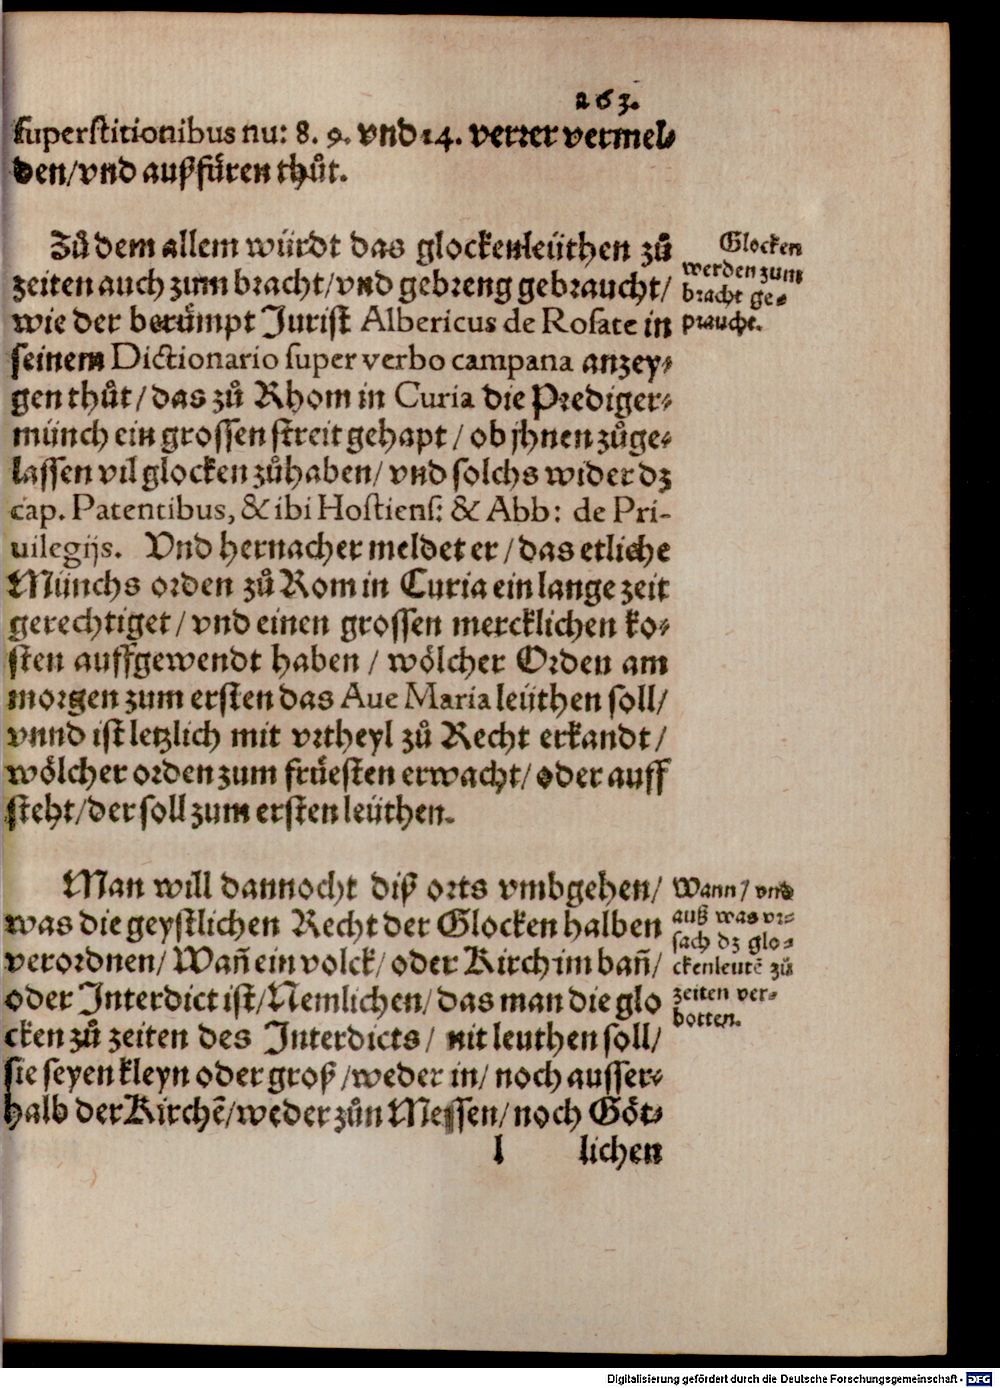 263.
superstitionibus nu: 8. 9. vnd 14. verrer vermel⸗
den/vnd außfüren thůt.
Zů dem allem würdt das glockenleüthen zů
zeiten auch zům bracht/vnd gebreng gebraucht/
wie der berümpt Jurist Albericus de Rosate in
seinem Dictionario super verbo campana anzey⸗
gen thůt/das zů Rhom in Curia die Prediger⸗
münch ein grossen streit gehapt/ob jhnen zůge⸗
lassen vil glocken zůhaben/vnd solchs wider dz
cap. Patentibus, & ibi Hostiens: & Abb: de Pri-
uilegijs. Vnd hernacher meldet er/das etliche
Münchs orden zů Rom in Curia ein lange zeit
gerechtiget/vnd einen grossen mercklichen ko⸗
sten auffgewendt haben/wölcher Orden am
morgen zum ersten das Aue Maria leüthen soll/
vnnd ist letzlich mit vrtheyl zů Recht erkandt/
wölcher orden zum früesten erwacht/oder auff
steht/der soll zum ersten leüthen.
Glocken
werden zum
bracht ge⸗
praucht.
Man will dannocht diß orts vmbgehen/
was die geystlichen Recht der Glocken halben
verordnen/Wañ ein volck/oder Kirch im bañ/
oder Interdict ist/Nemlichen/das man die glo
cken zů zeiten des Interdicts/nit leuthen soll/
sie seyen kleyn oder groß/weder in/noch ausser⸗
halb der Kirchē/weder zůn Messen/noch Göt⸗
Wann/vnd
auß was vr⸗
sach dz glo⸗
ckenleutē zů
zeiten ver⸗
botten.
l lichen
Digitalisierung gefördert durch die Deutsche Forschungsgemeinschaft - DFG